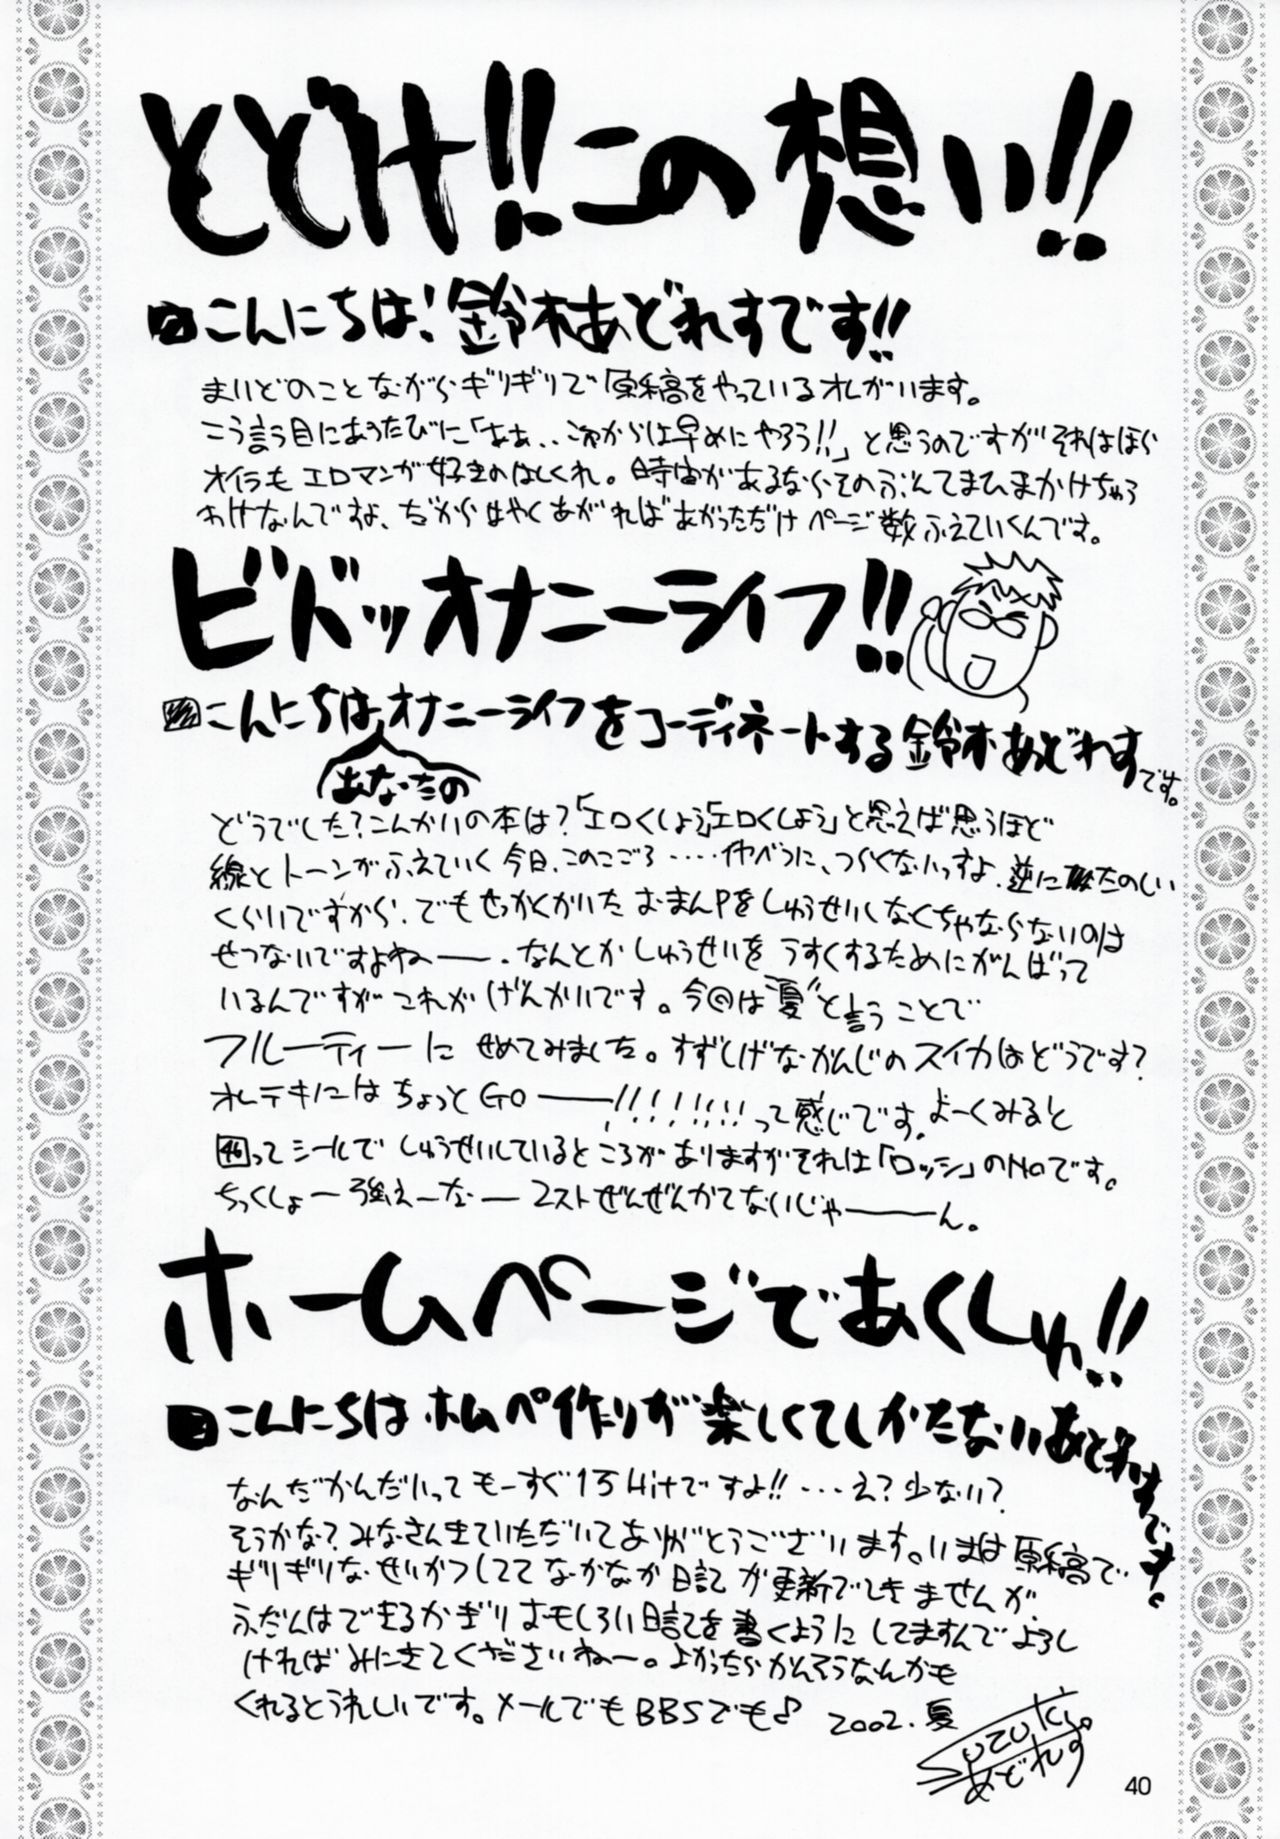 とどけ!!この想い!!
こんにちは!鈴木あどれすです!!
まいどのことながらギリギリで原稿をやっているオレがいます。
こう言う目にあうたびに「ああ、、これからは早めにやろう!!」と思うのですがそれはほら
オイラもエロマンガ好きのはしくれ。時間があるならそのぶんてまひまかけちゃう
わけなんですよ、だからはやくあがればあがっただけページ数ふえていくんです。
ビドッオナニーライフ!!
こんにちはオナニーライフをコーディネートする鈴木あどれすです。
あなたの
どうでした?こんかいの本は?「エロくしよう」「エロくしよう」と思えば思うほど
線とトーンがふえていく今日、このごろ‥‥べつに、つらくないっすよ、逆にたのしい
くらいですから、でもせっかくかいたおまんPをしゅうせいしなくちゃならないのは
せつないですよねー、なんとかしゅうせいをうすくするためにがんばって
いるんですがこれがげんかいです。今回は"夏"と言うことで
フルーティーにせめてみました。すずしげなかんじのスイカはどうです?
オレテキにはちょっとGOー!!!!!!!!って感じです。よーくみると
46ってシールでしゅうせいしているところがありますがそれは「ロッシ」のNoです。
ちっくしょー強えーなー2ストぜんぜんかてないじゃーーん。
ホームページであくしゅ!!
こんにちはホムペ作りが楽しくてしかたないあどれすです。
なんだかんだいってもーすぐ1万Hitですよ!!・・・え?少ない?
そうかな?みなさんきていただいてありがとうございます。いまは原稿で
ギリギリなせいかつしててなかなか日記が更新できませんが
ふだんはできるかぎりおもしろい日記を書くようにしてますんでよろし
ければみにきてくださいねー。よかったらかんそうなんかも
くれるとうれしいです。メールでもBBSでも♪ 2002.夏
Suzuki
あどれす
40